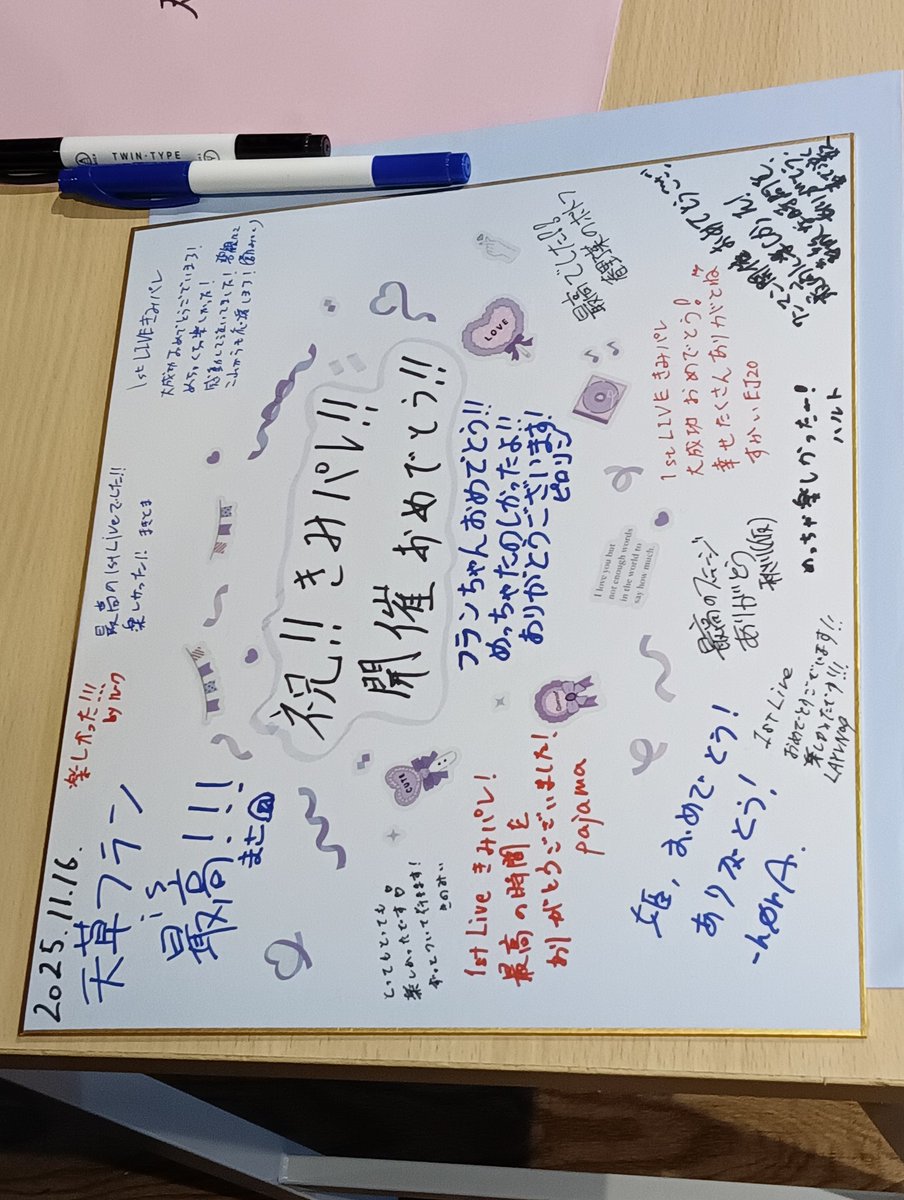 2025.11.16.
天草フラン
is
最高!!!
まさ
楽しかった!!!
by ルーク
最高の1st Liveでした!!
楽しかった!!
1st LIVE きみパレ
大成功おめでとうございます!
めちゃくちゃ楽しかった!
感動して泣いてました!
これからも応援します!
祝!! きみパレ!!
開催おめでとう!!
とってもとっても
楽しかったです♡
ずっとついて行きます!
このみい
1st Live きみパレ!
最高の時間を
ありがとうございました!
pajama
フランちゃんおめでとう!!
めっちゃたのしかったよ!!
ありがとうございます!
ピロリン
最高でした!!
1st LIVE きみパレ
大成功おめでとう!
幸せたくさんありがとね
すかいEJ20
おめでとう!
ありがとう!
最高のステージ
ありがとう
1st Live
おめでとうございます!!
楽しかったです!!!
めっちゃ楽しかったー!
ハルト
ワンマン開催おめでとうござい
LOVE
CUTE
I love you but
not enough words
in the world to
say how much.
TWIN-TYPE